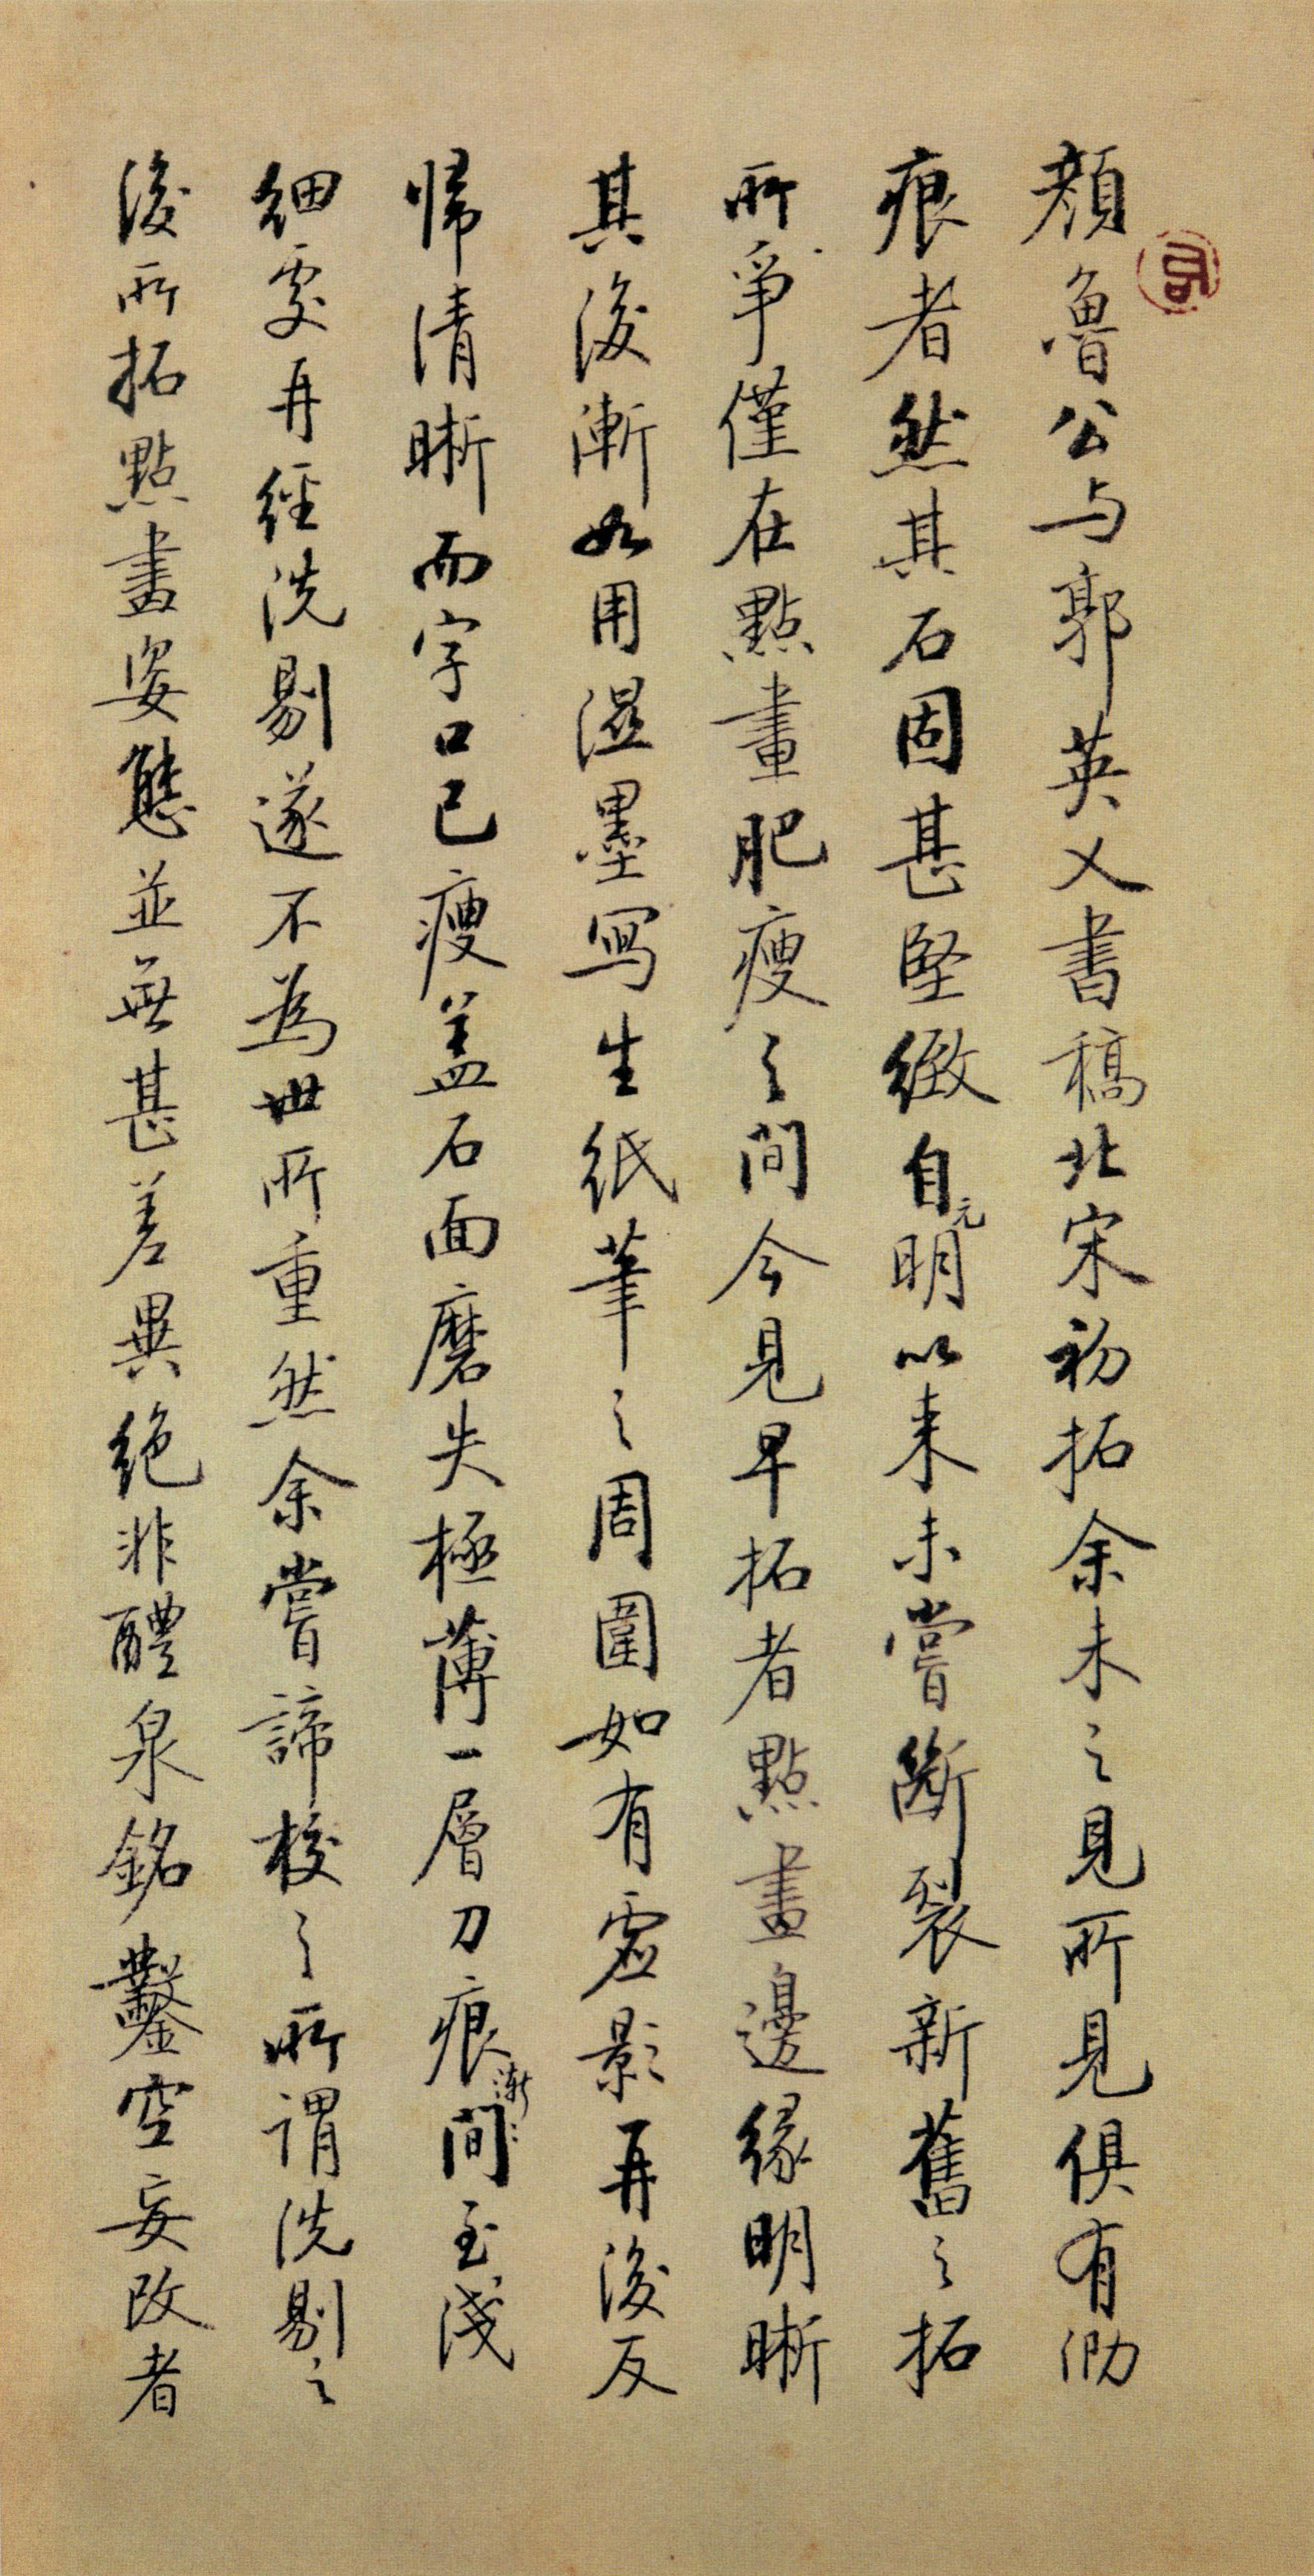 顏魯公与郭英乂書稿北宋初拓余未之見所見俱有泐
痕者然其石固甚堅緻自元明以来未嘗斷裂新舊之拓
所爭僅在點畫肥瘦之間今見早拓者點畫邊緣明晰
其後漸如用濕墨寫生紙筆之周圍如有虛影再後反
歸清晰而字口已瘦蓋石面磨失極薄一層刀痕漸漸間至淺
細處再經洗剔遂不為世所重然余嘗諦校之所謂洗剔之
後所拓點畫姿態並無甚差異絕非醴泉銘鑿空妄改者